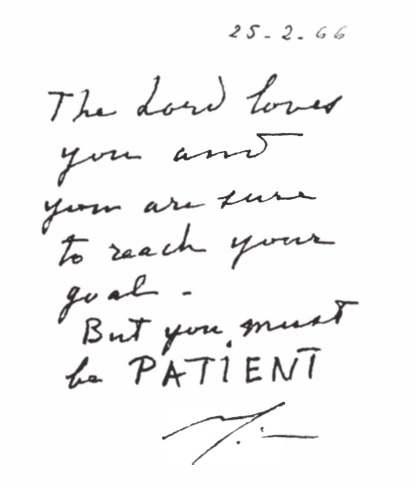 25-2-66
The Lord loves
you and
you are sure
to reach your
goal -
But you must
be PATIENT